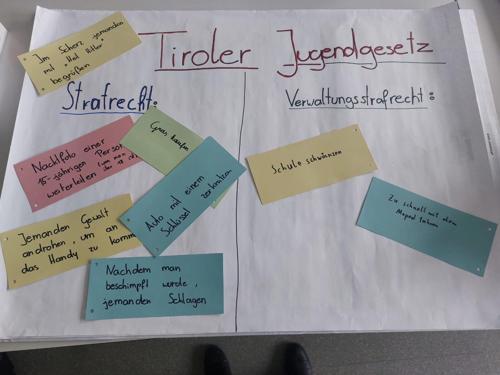 Tiroler Jugendgesetz
Strafrecht:
Verwaltungsstrafrecht:
Im Scherz jemanden
mit "Heil Hitler"
begrüßen
Gras kaufen
Nacktfoto einer
15-jährigen Person
weiterleiten
Auto mit einem
Schlüssel zerkratzen
Jemanden Gewalt
androhen, um an
das Handy zu komm
Nachdem man
beschimpft wurde,
jemanden Schlagen
Schule schwänzen
Zu schnell mit dem
Moped fahren